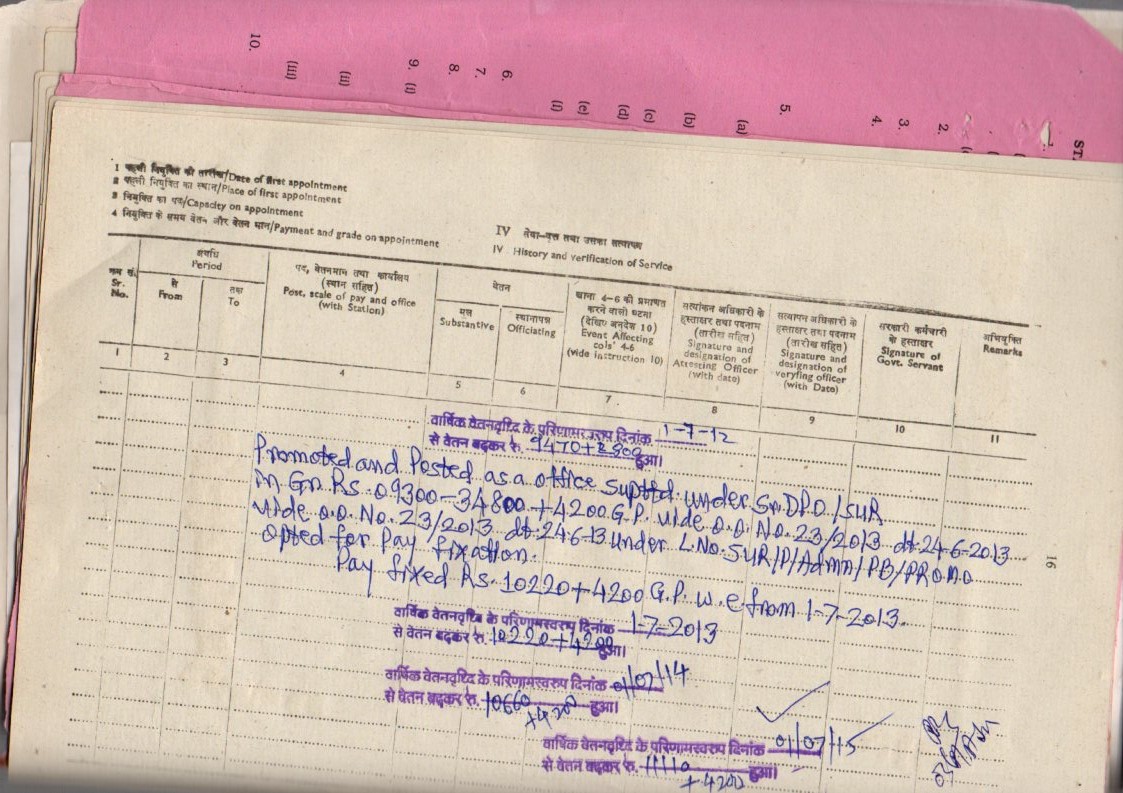 10.
(iii)
(ii)
9. (i)
8.
7.
6.
(f)
(e)
(d)
(c)
(b)
(a)
5.
4.
3.
2.
ST
1 पहली नियुक्ति की तारीख/Date of first appointment
2 पहली नियुक्ति का स्थान/Place of first appointment
3 नियुक्ति का पद/Capacity on appointment
4 नियुक्ति के समय वेतन और वेतन मान/Payment and grade on appointment
IV सेवा-वृत्त तथा उसका सत्यापन
IV History and verification of Service
क्रम सं.
Sr.
No.
अवधि
Period
से
From
तक
To
पद, वेतनमान तथा कार्यालय
(स्थान सहित)
Post, scale of pay and office
(with Station)
वेतन
मूल
Substantive
स्थानापन्न
Officiating
खाना 4-6 की प्रभावित
करने वाली घटना
(देखिए अनुदेश 10)
Event Affecting
cols' 4-6
(vide instruction 10)
सत्यांकन अधिकारी के
हस्ताक्षर तथा पदनाम
(तारीख सहित)
Signature and
designation of
Attesting Officer
(with date)
सत्यापन अधिकारी के
हस्ताक्षर तथा पदनाम
(तारीख सहित)
Signature and
designation of
veryfing officer
(with Date)
सरकारी कर्मचारी
के हस्ताक्षर
Signature of
Govt. Servant
अभियुक्ति
Remarks
1 2 3 4 5 6 7 8 9 10 11
वार्षिक वेतनवृध्दि के परिणामस्वरुप दिनांक 1-7-12
से वेतन बढ़कर रु. 9470+2800 हुआ।
Promoted and Posted as a office Supttd. under Sr.DPO/SUR
in Gr. Rs. 09300-34800+4200 G.P. vide O.O. No. 23/2013 dt. 24-6-2013
vide O.O. No. 23/2013 dt. 24-6-13 under L.No. SUR/P/Admn/PB/PROMO
opted for Pay fixation.
Pay fixed Rs. 10220+4200 G.P. w.e from 1-7-2013.
वार्षिक वेतनवृध्दि के परिणामस्वरुप दिनांक 1-7-2013
से वेतन बढ़कर रु. 10220+4200 हुआ।
वार्षिक वेतनवृध्दि के परिणामस्वरुप दिनांक 01/07/14
से वेतन बढ़कर रु. 10660 हुआ।
+4200
वार्षिक वेतनवृध्दि के परिणामस्वरुप दिनांक 01/07/15
से वेतन बढ़कर रु. 11110 हुआ।
+4200
16